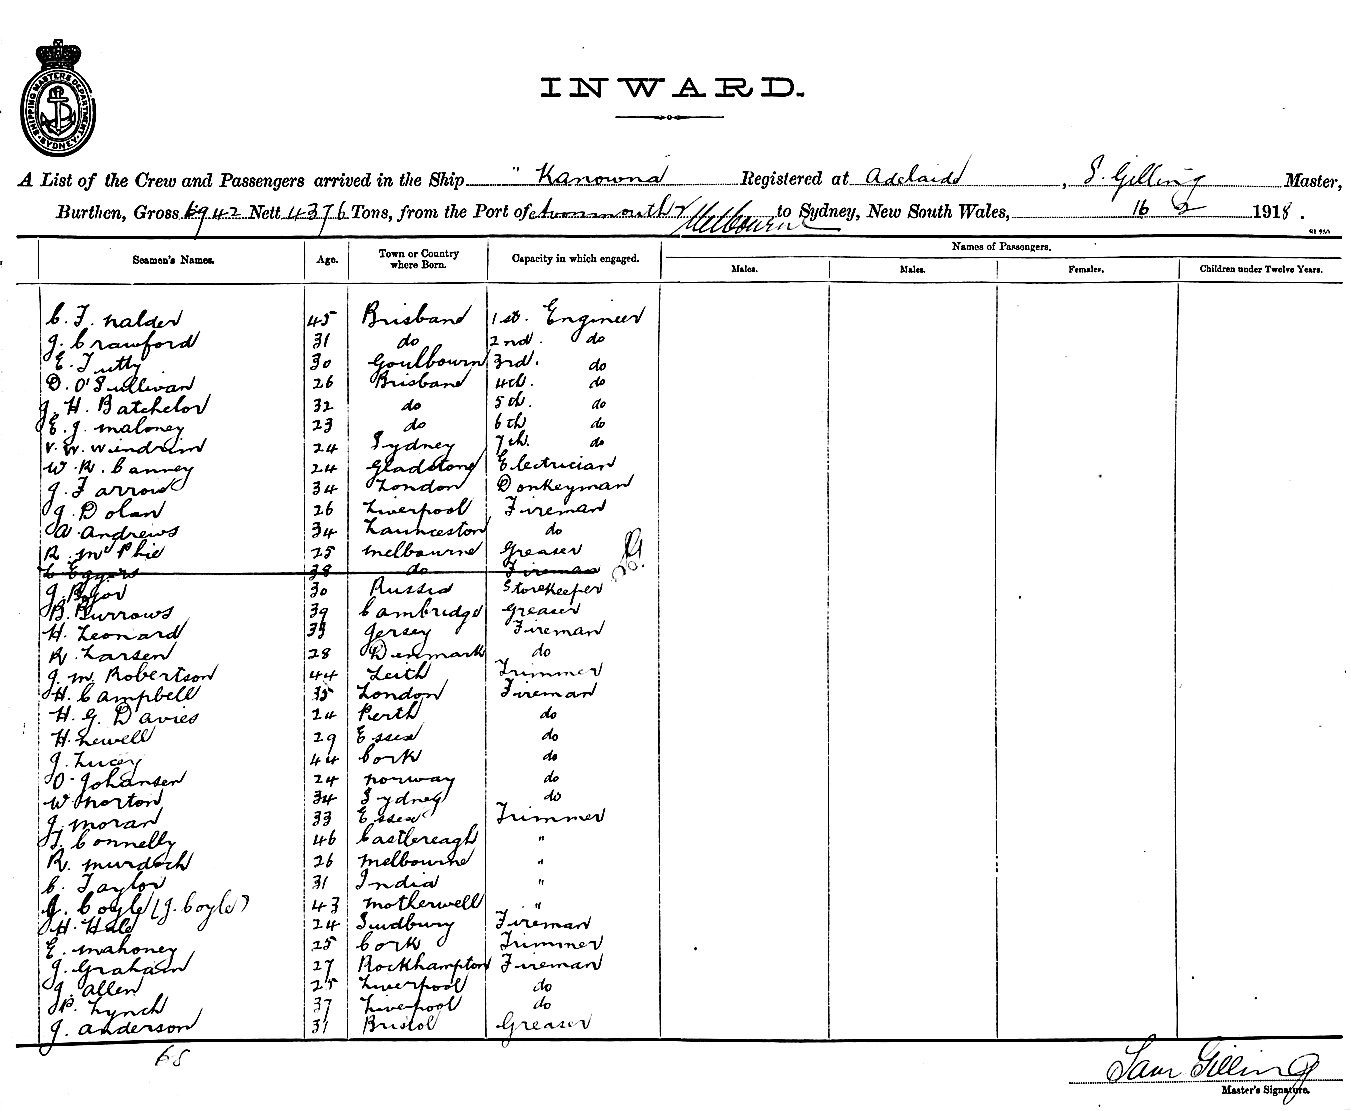 SHIPPING MASTERS DEPARTMENT SYDNEY
INWARD.
A List of the Crew and Passengers arrived in the Ship "Kanowna Registered at Adelaide, S. Gilling Master,
Burthen, Gross 6942 Nett 4376 Tons, from the Port of Avonmouth & Melbourne to Sydney, New South Wales, 16 2 1918.
Names of Passengers.
Seamen's Names. Age. Town or Country where Born. Capacity in which engaged. Males. Males. Females. Children under Twelve Years.
C. F. Nalder 45 Brisbane 1st. Engineer
J. Crawford 31 do 2nd. do
E. Tutty 30 Goulbourn 3rd. do
D. O'Sullivan 26 Brisbane 4th. do
J. H. Batchelor 32 do 5th. do
E. J. Maloney 23 do 6th do
V. W. Windrim 24 Sydney 7th. do
W. R. Canney 24 Gladstone Electrician
J. Farrow 34 London Donkeyman
J. Dolan 26 Liverpool Fireman
A. Andrews 34 Launceston do
R. McPhie 25 Melbourne Greaser
Eggers 38 do Fireman
J. 30 Russia Storekeeper
B. Burrows 39 Cambridge Greaser
H. Leonard Jersey Fireman
R. Larsen 28 Denmark do
J. M. Robertson 44 Leith Trimmer
H. Campbell 35 London Fireman
H. G. Davies 24 Perth do
H. Newell 29 Essex do
J. Lucey 44 Cork do
O. Johansen 24 Norway do
W Norton 34 Sydney do
J. Moran 33 Essex Trimmer
T. Connelly 46 Castlereagh "
R. Murdoch 26 Melbourne "
C. Taylor 31 India "
J. Coyle (J. Coyle) 43 Motherwell "
H. Hale 24 Sudbury Fireman
E. Mahoney 25 Cork Trimmer
J. Graham 27 Rockhampton Fireman
J. Allen 25 Liverpool do
P. Lynch 37 Liverpool do
J. Anderson 31 Bristol Greaser
68
Sam Gilling
Master's Signature.